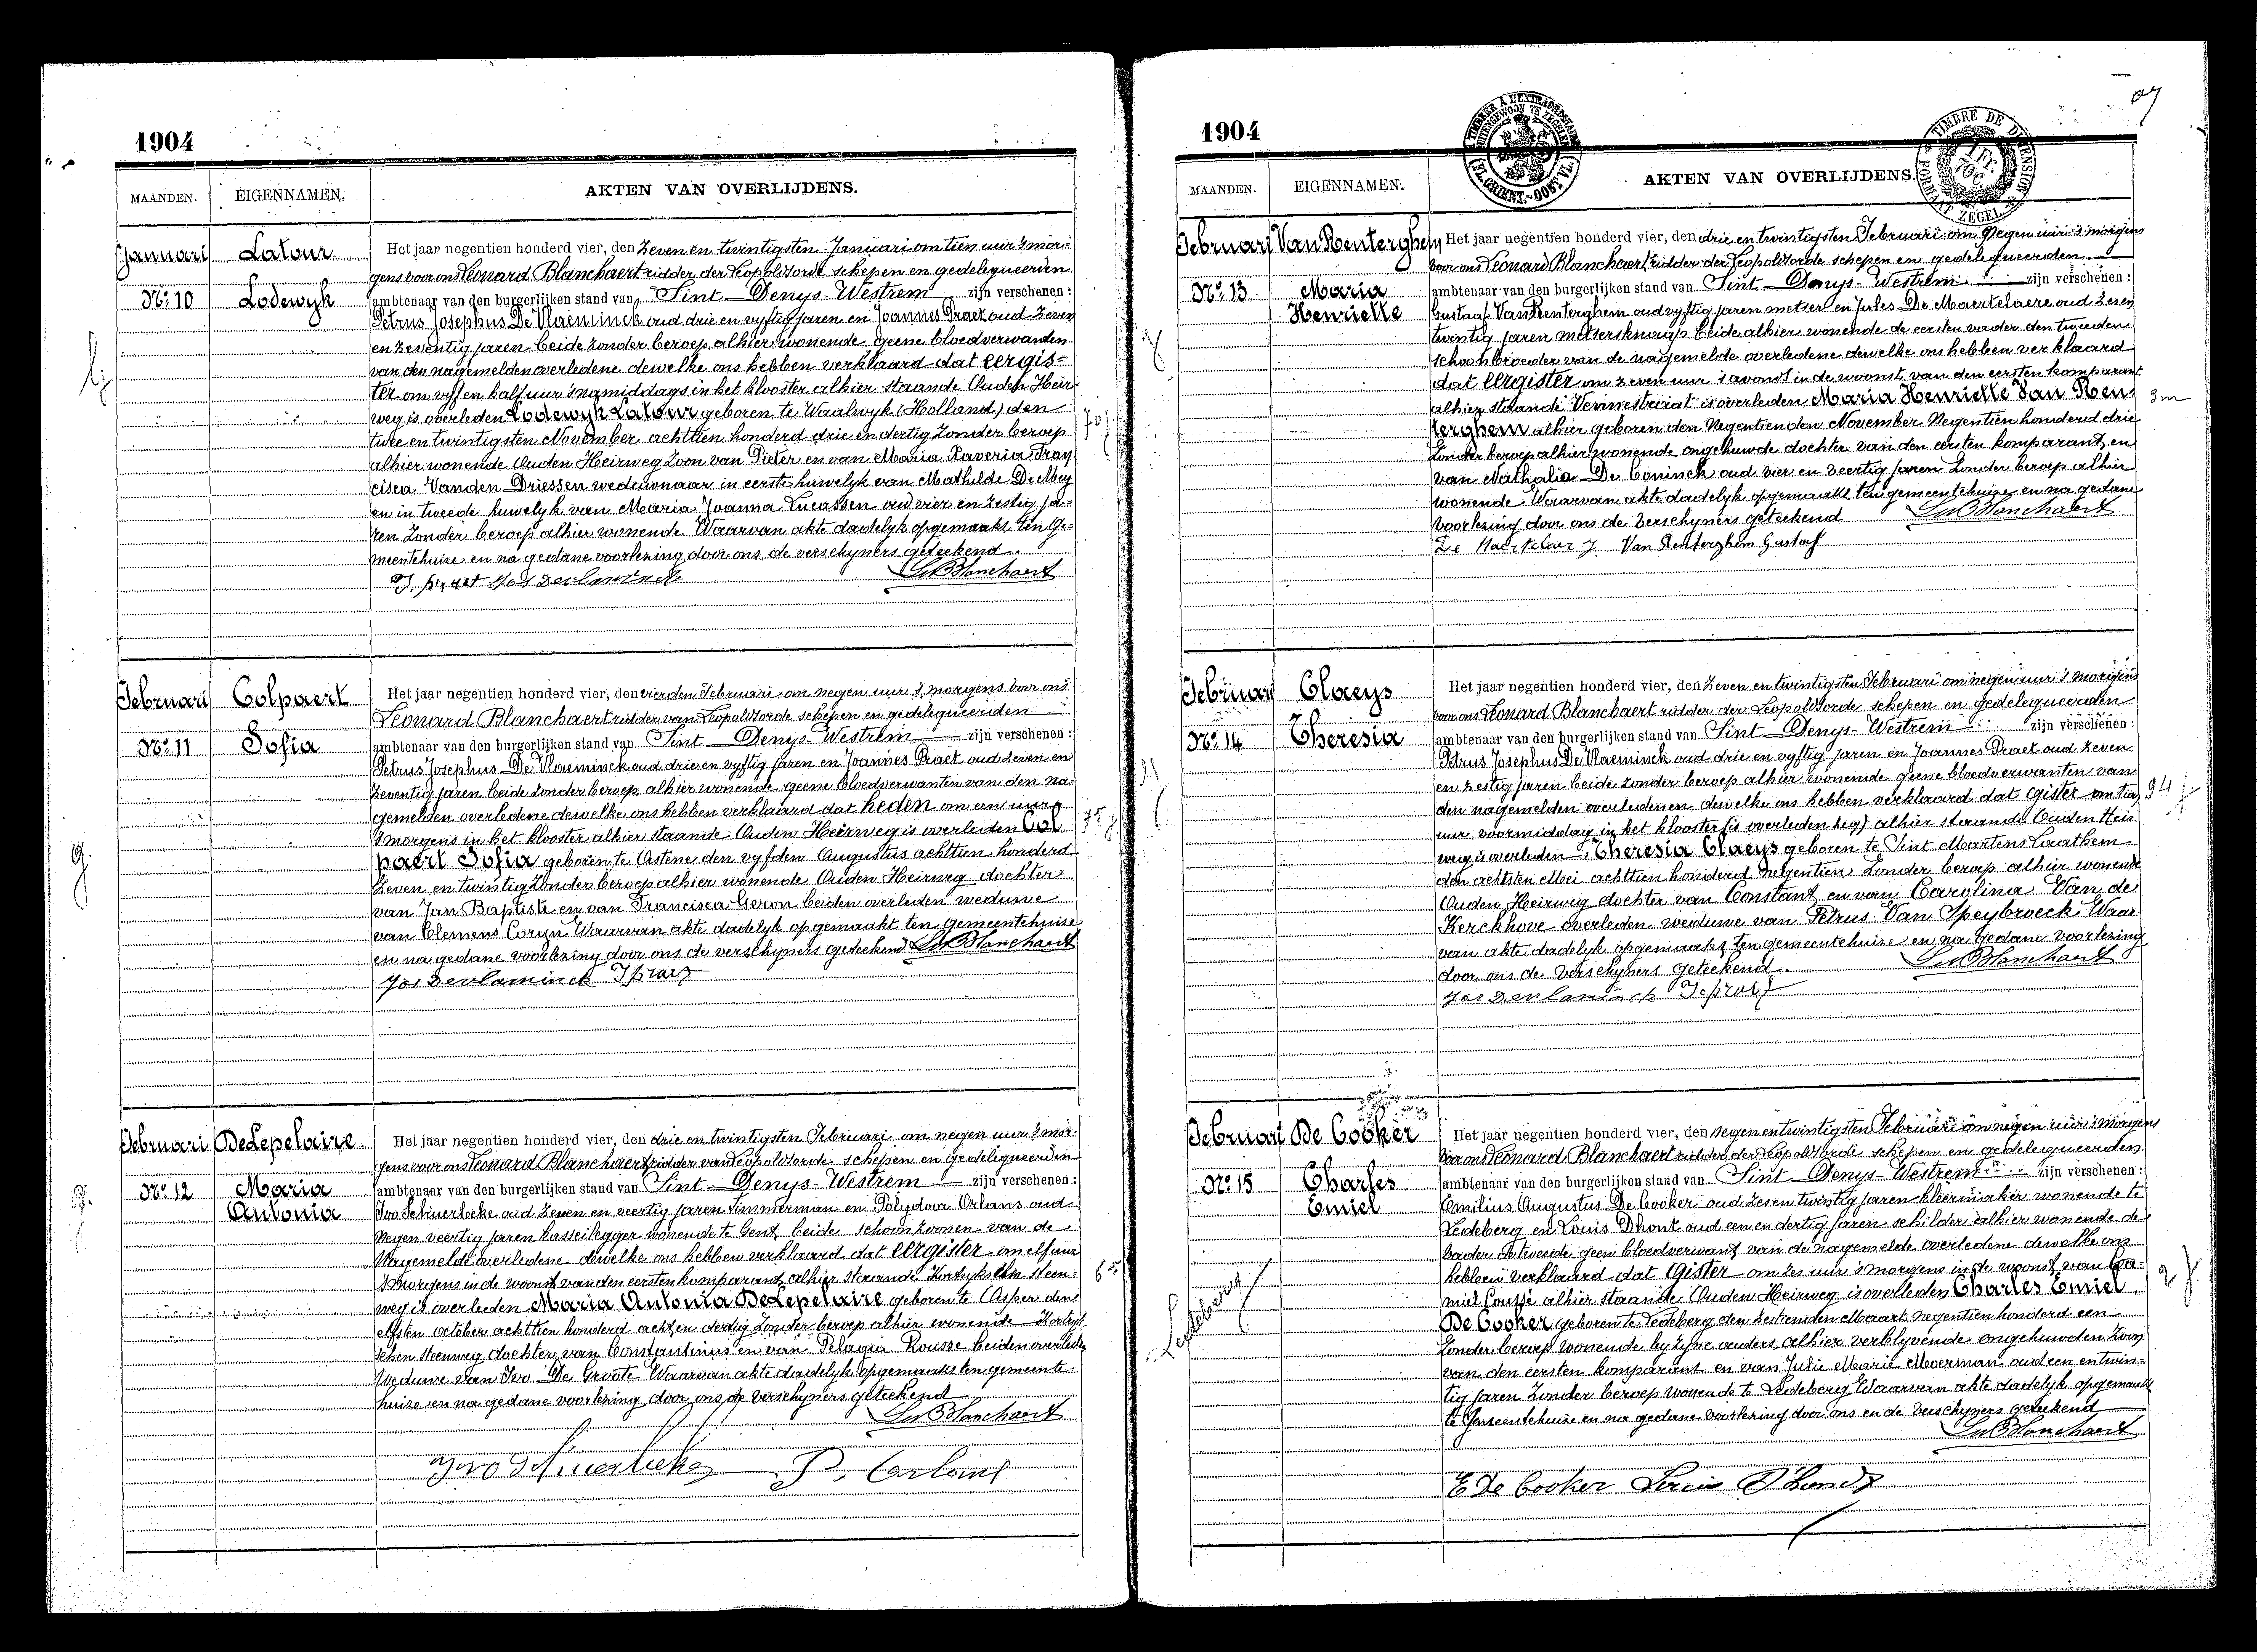 1904
MAANDEN. EIGENNAMEN. AKTEN VAN OVERLIJDENS.
Januari Latour Het jaar negentien honderd vier, den zeven en twintigsten Januari om tien uur 's mor-
gens voor ons Leonard Blanchaert ridder der Leopoldsorde schepen en gedelegueerden
No. 10 Lodewyk ambtenaar van den burgerlijken stand van Sint-Denys-Westrem zijn verschenen:
Petrus Josephus De Vlaeminck oud drie en vyftig jaren en Joannes Praet oud zeven
en zeventig jaren beide zonder beroep alhier wonende geene bloedverwanden
van den nagemelden overledene dewelke ons hebben verklaard dat eergis-
ter om vyf en half uur 's namiddags in het klooster alhier staande Ouden Heir-
weg is overleden Lodewyk Latour geboren te Waalwyk (Holland) den
twee en twintigsten November achttien honderd drie en dertig zonder beroep
70 j
alhier wonende Ouden Heirweg zoon van Pieter en van Maria Xaveria Fran
cisca Vanden Driessen weduwnaar in eerste huwelyk van Mathilde De Mey
en in tweede huwelyk van Maria Joanna Lucassen oud vier en zestig ja-
ren zonder beroep alhier wonende Waarvan akte dadelyk opgemaakt ten Ge-
meentehuize en na gedane voorlezing door ons de verschyners geteekend.
J. praet Jos Devlaminck LBlanchaert
Februari Colpaert Het jaar negentien honderd vier, den vierden Februari om negen uur 's morgens voor ons
Leonard Blanchaert ridder van Leopoldsorde schepen en gedelegueerden
No. 11 Sofia ambtenaar van den burgerlijken stand van Sint-Denys-Westrem zijn verschenen:
Petrus Josephus De Vlaeminck oud drie en vyftig jaren en Joannes Praet oud zeven en
zeventig jaren beide zonder beroep alhier wonende geene bloedverwanten van den na-
gemelden overledene dewelke ons hebben verklaard dat heden om een uur
's morgens in het klooster alhier staande Ouden Heirweg is overleden Col
75 j
paert Sofia geboren te Astene den vyfden Augustus achttien honderd
zeven en twintig zonder beroep alhier wonende Ouden Heirweg dochter
van Jan Baptiste en van Francisca Geron beiden overleden weduwe
van Clemens Coryn Waarvan akte dadelyk opgemaakt ten gemeentehuize
en na gedane voorlezing door ons de verschyners geteekend LBlanchaert
Jos Devlaminck J praet
Februari De Lepelaire Het jaar negentien honderd vier, den drie en twintigsten Februari om negen uur 's mor-
gens voor ons Leonard Blanchaert ridder van Leopoldsorde schepen en gedelegueerden
No. 12 Maria ambtenaar van den burgerlijken stand van Sint-Denys-Westrem zijn verschenen:
Antonia Ivo Schuerbeke oud zeven en veertig jaren timmerman en Polydoor Orlans oud
negen veertig jaren kasseilegger wonende te Gent beide schoonzoonen van de
nagemelde overledene dewelke ons hebben verklaard dat eergister om elf uur
's morgens in de woonst van den eersten komparant alhier staande Kortrykschen steen-
65
weg is overleden Maria Antonia De Lepelaire geboren te Asper den
elfsten October achttien honderd acht en dertig zonder beroep alhier wonende Kortryk-
schen steenweg dochter van Constantinus en van Pelagia Rousse beiden overleden
Weduwe van Ivo De Groote Waarvan akte dadelyk opgemaakt ten gemeente-
huize en na gedane voorlezing door ons de verschyners geteekend
LBlanchaert
Ivo Schuerbeke P. Orlans
1904
MAANDEN. EIGENNAMEN. AKTEN VAN OVERLIJDENS.
Februari Van Renterghem Het jaar negentien honderd vier, den drie en twintigsten Februari om negen uur 's morgens
voor ons Leonard Blanchaert ridder der Leopoldsorde schepen en gedelegueerden
No. 13 Maria ambtenaar van den burgerlijken stand van Sint-Denys-Westrem zijn verschenen:
Henriette Gustaaf Van Renterghem oud vyftig jaren metser en Jules De Maertelaere oud zesen
twintig jaren metsersknaap beide alhier wonende de eersten vader den tweeden
schoonbroeder van de nagemelde overledene dewelke ons hebben verklaard
dat eergister om zeven uur 's avonds in de woonst van den eersten komparant
alhier staande Vennestraat is overleden Maria Henriette Van Ren
3 m
terghem alhier geboren den negentienden November negentien honderd drie
zonder beroep alhier wonende ongehuwde dochter van den eersten komparant en
van Nathalie De Coninck oud vier en veertig jaren zonder beroep alhier
wonende Waarvan akte dadelyk opgemaakt ten gemeentehuize en na gedane
voorlezing door ons de verschyners geteekend LBlanchaert
De Maertelaer J Van Renterghem Gustaf
Februari Claeys Het jaar negentien honderd vier, den zeven en twintigsten Februari om negen uur 's morgens
voor ons Leonard Blanchaert ridder der Leopoldsorde schepen en gedelegueerden
No. 14 Theresia ambtenaar van den burgerlijken stand van Sint-Denys-Westrem zijn verschenen:
Petrus Josephus De Vlaeminck oud drie en vyftig jaren en Joannes Praet oud zeven
en zestig jaren beide zonder beroep alhier wonende geene bloedverwanten van
den nagemelden overledenen dewelke ons hebben verklaard dat gister om tien
94 j
uur voormiddag in het klooster (is overleden weg) alhier staande Ouden Heir
weg is overleden Theresia Claeys geboren te Sint Martens Laathem
den achtsten Mei achttien honderd negentien zonder beroep alhier wonende
Ouden Heirweg dochter van Constant en van Carolina Van de
Kerckhove overleden weduwe van Petrus Van Speybroeck Waar
van akte dadelyk opgemaakt ten gemeentehuize en na gedane voorlezing
door ons de verschyners geteekend. LBlanchaert
Jos Devlaminck J praet
Februari De Cooker Het jaar negentien honderd vier, den negen en twintigsten Februari om negen uur 's morgens
voor ons Leonard Blanchaert ridder der Leopoldsorde schepen en gedelegueerden
No. 15 Charles ambtenaar van den burgerlijken stand van Sint-Denys-Westrem zijn verschenen:
Emiel Emilius Augustus De Cooker oud zes en twintig jaren kleermaker wonende te
Ledeberg en Louis Dhont oud een en dertig jaren schilder alhier wonende de
vader de tweede geen bloedverwant van de nagemelde overledene dewelke ons
hebben verklaard dat gister om zes uur 's morgens in de woonst van Ca-
2 j.
miel Coussé alhier staande Ouden Heirweg is overleden Charles Emiel
Ledeberg
De Cooker geboren te Ledeberg den zestienden Maart negentien honderd een
zonder beroep wonende by zyne ouders alhier verblyvende ongehuwden zoon
van den eersten komparant en van Julie Marie Moerman oud een en twin-
tig jaren zonder beroep wonende te Ledeberg Waarvan akte dadelyk opgemaakt
te Gemeentehuize en na gedane voorlezing door ons en de verschyners geteekend
LBlanchaert
E De Cooker Louis D'hondt